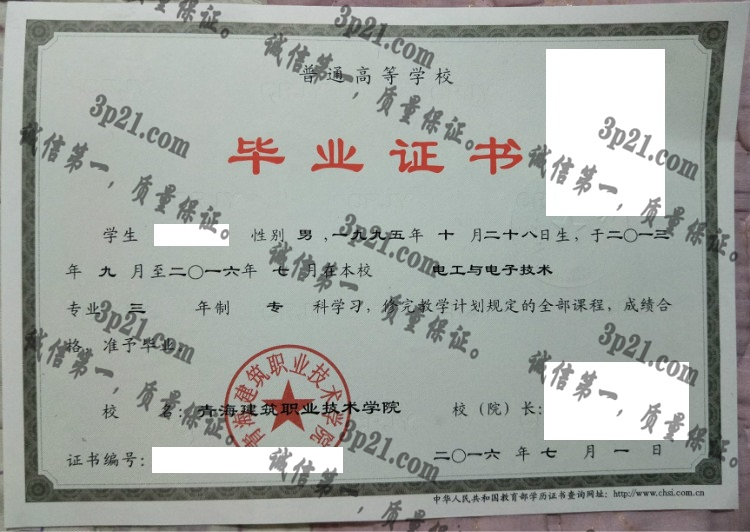 普通高等学校
毕业证书
学生 性别 男，一九九五年 十 月二十八日生，于二〇一三
年 九 月至二〇一六年 七 月在本校 电工与电子技术
专业 三 年制 专 科学习，修完教学计划规定的全部课程，成绩合
格，准予毕业。
校 名：青海建筑职业技术学院 校（院）长：
青海建筑职业技术学院
证书编号： 二〇一六 年 七 月 一 日
中华人民共和国教育部学历证书查询网址：http://www.chsi.com.cn
3p21.com
诚信第一，质量保证。
3p21.com
诚信第一，质量保证。
3p21.com
诚信第一，质量保证。
3p21.com
诚信第一，质量保证。
3p21.com
诚信第一，质量保证。
3p21.com
诚信第一，质量保证。
3p21.com
诚信第一，质量保证。